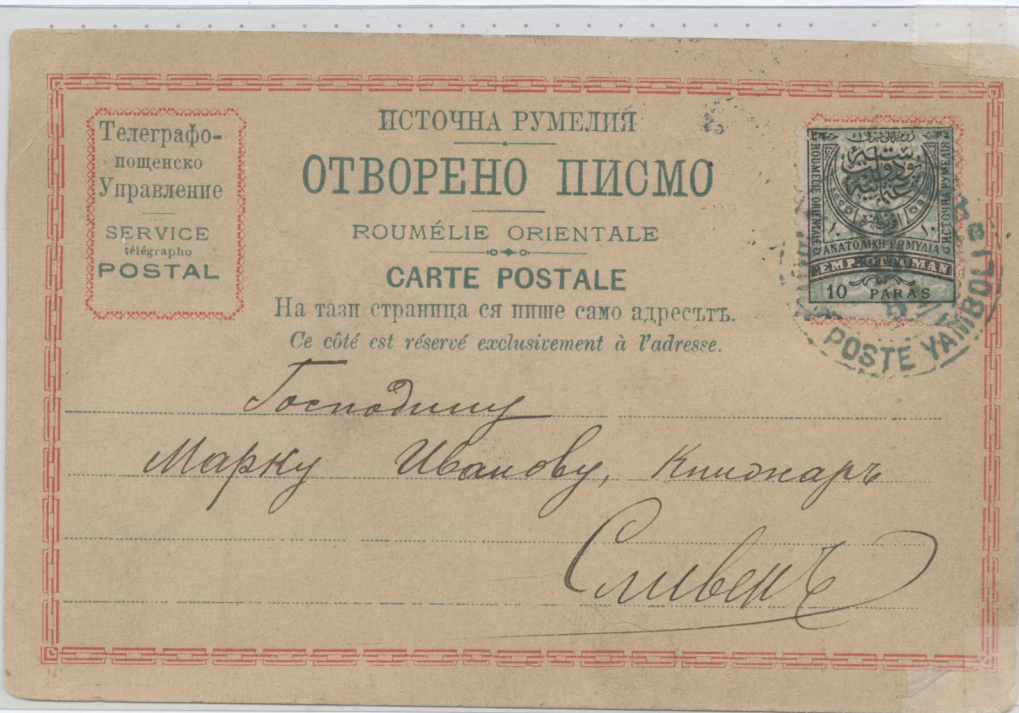 Телеграфо-
пощенско
Управление
SERVICE
télégrapho
POSTAL
ИСТОЧНА РУМЕЛИЯ
ОТВОРЕНО ПИСМО
ROUMÉLIE ORIENTALE
CARTE POSTALE
На тази страница ся пише само адресътъ.
Ce côté est réservé exclusivement à l'adresse.
ROUMELIE ORIENTALE
ИСТОЧНА РУМЕЛИЯ
ΑΝΑΤΟΛΙΚΗ ΡΩΜΥΛΙΑ
EMP. OTTOMAN
10 PARAS
POSTE YAMBOLI
Господину
Марку Иванову, Книжаръ
Сливенъ